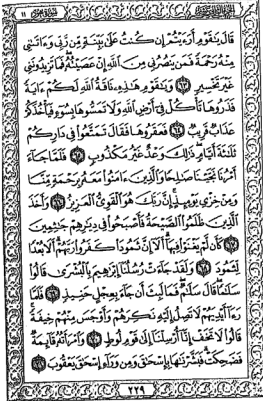 قَالَ يَٰقَوْمِ أَرَءَيْتُمْ إِن كُنتُ عَلَىٰ بَيِّنَةٍ مِّن رَّبِّي وَءَاتَىٰنِي
مِنْهُ رَحْمَةً فَمَن يَنصُرُنِي مِنَ ٱللَّهِ إِنْ عَصَيْتُهُۥ فَمَا تَزِيدُونَنِي
غَيْرَ تَخْسِيرٍ ٦٣ وَيَٰقَوْمِ هَٰذِهِۦ نَاقَةُ ٱللَّهِ لَكُمْ ءَايَةً
فَذَرُوهَا تَأْكُلْ فِيٓ أَرْضِ ٱللَّهِ وَلَا تَمَسُّوهَا بِسُوٓءٍ فَيَأْخُذَكُمْ
عَذَابٌ قَرِيبٌ ٦٤ فَعَقَرُوهَا فَقَالَ تَمَتَّعُوا۟ فِي دَارِكُمْ
ثَلَٰثَةَ أَيَّامٍ ذَٰلِكَ وَعْدٌ غَيْرُ مَكْذُوبٍ ٦٥ فَلَمَّا جَآءَ
أَمْرُنَا نَجَّيْنَا صَٰلِحًا وَٱلَّذِينَ ءَامَنُوا۟ مَعَهُۥ بِرَحْمَةٍ مِّنَّا
وَمِنْ خِزْيِ يَوْمِئِذٍ إِنَّ رَبَّكَ هُوَ ٱلْقَوِيُّ ٱلْعَزِيزُ ٦٦ وَأَخَذَ
ٱلَّذِينَ ظَلَمُوا۟ ٱلصَّيْحَةُ فَأَصْبَحُوا۟ فِي دِيَٰرِهِمْ جَٰثِمِينَ
٦٧ كَأَن لَّمْ يَغْنَوْا۟ فِيهَآ أَلَآ إِنَّ ثَمُودَا۟ كَفَرُوا۟ رَبَّهُمْ أَلَا بُعْدًا
لِّثَمُودَ ٦٨ وَلَقَدْ جَآءَتْ رُسُلُنَآ إِبْرَٰهِيمَ بِٱلْبُشْرَىٰ قَالُوا۟
سَلَٰمًا قَالَ سَلَٰمٌ فَمَا لَبِثَ أَن جَآءَ بِعِجْلٍ حَنِيذٍ ٦٩ فَلَمَّا
رَءَآ أَيْدِيَهُمْ لَا تَصِلُ إِلَيْهِ نَكِرَهُمْ وَأَوْجَسَ مِنْهُمْ خِيفَةً
قَالُوا۟ لَا تَخَفْ إِنَّآ أُرْسِلْنَآ إِلَىٰ قَوْمِ لُوطٍ ٧٠ وَٱمْرَأَتُهُۥ قَآئِمَةٌ
فَضَحِكَتْ فَبَشَّرْنَٰهَا بِإِسْحَٰقَ وَمِن وَرَآءِ إِسْحَٰقَ يَعْقُوبَ ٧١
٢٢٩